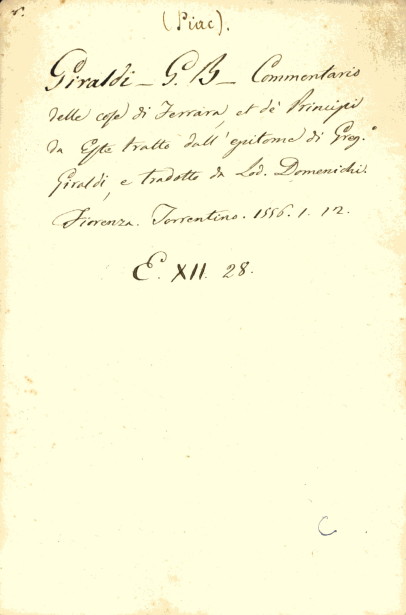 (Piac).
Giraldi - G. B - Commentario
delle cose di Ferrara, et de' Principi
da Este tratto dall' epitome di Greg.º
Giraldi, e tradotto da Lod. Domenichi.
Fiorenza. Torrentino. 1556. 1. 12.
E. XII. 28.
C